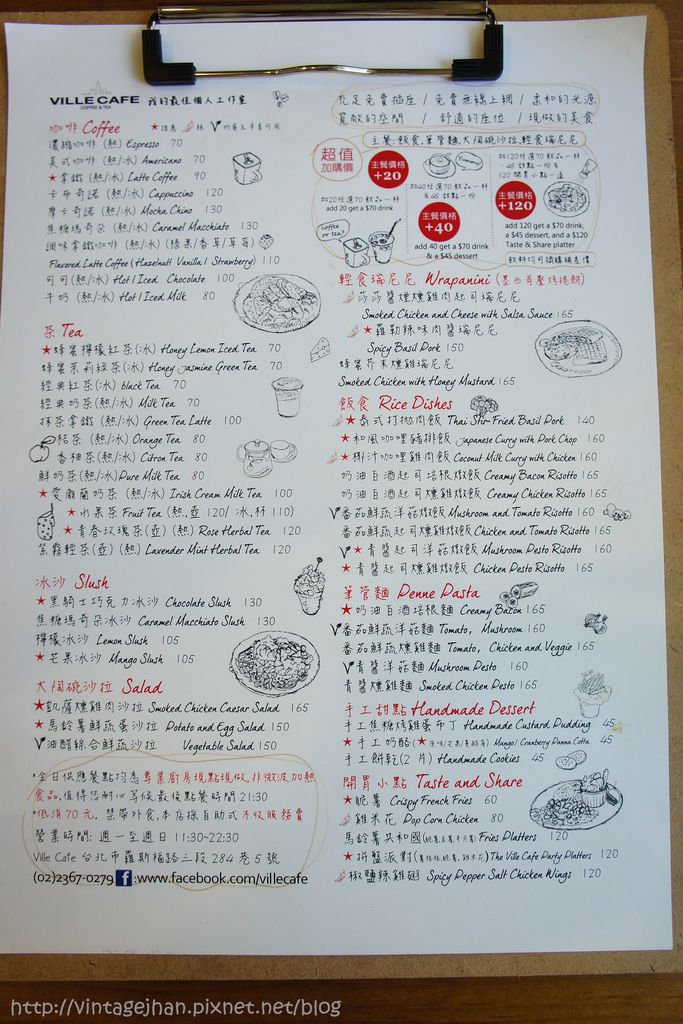 VILLE CAFE 我的最佳個人工作室
COFFEE & TEA
咖啡 Coffee ★推薦 辣 V 奶蛋五辛素可用
濃縮咖啡 (熱) Espresso 70
美式咖啡 (熱/冰) Americano 70
★拿鐵 (熱/冰) Latte Coffee 90
卡布奇諾 (熱/冰) Cappuccino 120
摩卡奇諾 (熱/冰) Mocha Chino 130
焦糖瑪奇朵 (熱/冰) Caramel Macchiato 130
調味拿鐵咖啡 (熱/冰) (榛果/香草/草莓)
Flavored Latte Coffee (Haselnut\ Vanilla \ Strawberry) 110
可可(熱/冰) Hot \ Iced Chocolate 100
牛奶 (熱/冰) Hot \ Iced Milk 80
茶 Tea
★蜂蜜檸檬紅茶(冰) Honey Lemon Iced Tea 70
蜂蜜茉莉綠茶(冰) Honey Jasmine Green Tea 70
經典紅茶(冰) black Tea 70
經典奶茶(熱/冰) Milk Tea 70
抹茶拿鐵 (熱/冰) Green Tea Latte 100
桔茶 (熱/冰) Orange Tea 80
香柚茶(熱/冰) Citron Tea 80
鮮奶茶(熱/冰)Pure Milk Tea 80
★愛爾蘭奶茶 (熱/冰) Irish Cream Milk Tea 100
★水果茶 Fruit Tea (熱,壺 120/ 冰,杯 110)
★青春玫瑰茶(壺) (熱) Rose Herbal Tea 120
紫霧輕茶(壺) (熱) Lavender Mint Herbal Tea 120
冰沙 Slush
★黑騎士巧克力冰沙 Chocolate Slush 130
焦糖瑪奇朵冰沙 Caramel Macchiato Slush 130
檸檬冰沙 Lemon Slush 105
★芒果冰沙 Mango Slush 105
大陶碗沙拉 Salad
★凱薩燻雞肉沙拉 Smoked Chicken Caesar Salad 165
★馬鈴薯鮮蔬蛋沙拉 Potato and Egg Salad 150
V油醋綜合鮮蔬沙拉 Vegetable Salad 150
*今日供應餐點均為專業廚房現點現做,非微波加熱
食品,值得您耐心等候.最後點餐時間21:30
*低消70元, 禁帶外食.本店採自助式不收服務費
營業時間: 週一至週日 11:30~22:30
Ville Cafe 台北市羅斯福路三段 284 巷 5 號
(02)2367-0279 f :www.facebook.com/villecafe
充足免費插座 / 免費無線上網 / 柔和的光源
寬敞的空間 / 舒適的座位 / 現做的美食
主餐:飯食,筆管麵,大陶碗沙拉,輕食瑞尼尼
超值
加購價
主餐價格
+20
Yummy!
如20任選70飲品一杯
add 20 get a $70 drink
coffee or tea?
如40任選70飲品一杯
& 45 甜點一份
主餐價格
+40
add 40 get a $70 drink
& a $45 dessert
如120任選70飲品一杯
& 45 甜點一份 &
120 開胃小點一盤
主餐價格
+120
add 120 get a $70 drink,
a $45 dessert, and a $120
Taste & Share platter
飲料均可補購補差價
輕食瑞尼尼 Wrapanini (墨西哥壓烤捲餅)
莎莎醬煙燻雞肉起司瑞尼尼
Smoked Chicken and Cheese with Salsa Sauce 165
★羅勒辣味肉醬瑞尼尼
Spicy Basil Pork 150
蜂蜜芥末燻雞瑞尼尼
Smoked Chicken with Honey Mustard 165
飯食 Rice Dishes
★泰式打拋肉飯 Thai Stir-Fried Basil Pork 140
★和風咖哩豬排飯 Japanese Curry with Pork Chop 160
★椰汁咖哩雞肉飯 Coconut Milk Curry with Chicken 160
奶油白酒起司培根燉飯 Creamy Bacon Risotto 165
奶油白酒起司燻雞燉飯 Creamy Chicken Risotto 165
V番茄鮮蔬洋菇燉飯 Mushroom and Tomato Risotto 160
番茄鮮蔬燻雞燉飯 Chicken and Tomato Risotto 165
V★青醬起司洋菇燉飯 Mushroom Pesto Risotto 160
★青醬起司燻雞燉飯 Chicken Pesto Risotto 165
筆管麵 Penne Pasta
★奶油白酒培根麵 Creamy Bacon 165
V番茄鮮蔬洋菇麵 Tomato, Mushroom 160
番茄鮮蔬燻雞麵 Tomato, Chicken and Veggie 165
V青醬洋菇麵 Mushroom Pesto 160
青醬燻雞麵 Smoked Chicken Pesto 165
手工甜點 Handmade Dessert
手工焦糖烤雞蛋布丁 Handmade Custard Pudding 45
★手工奶酪(★原味/芒果/蔓越莓) Mango/ Cranberry Panna Cotta 45
手工餅乾(2 片) Handmade Cookies 45
開胃小點 Taste and Share
★脆薯 Crispy French Fries 60
雞米花 Pop Corn Chicken 80
馬鈴薯共和國 Fries Platters 120
★拼盤派對 The Ville Cafe Party Platters 120
椒鹽辣雞翅 Spicy Pepper Salt Chicken Wings 120
http://vintagejhan.pixnet.net/blog